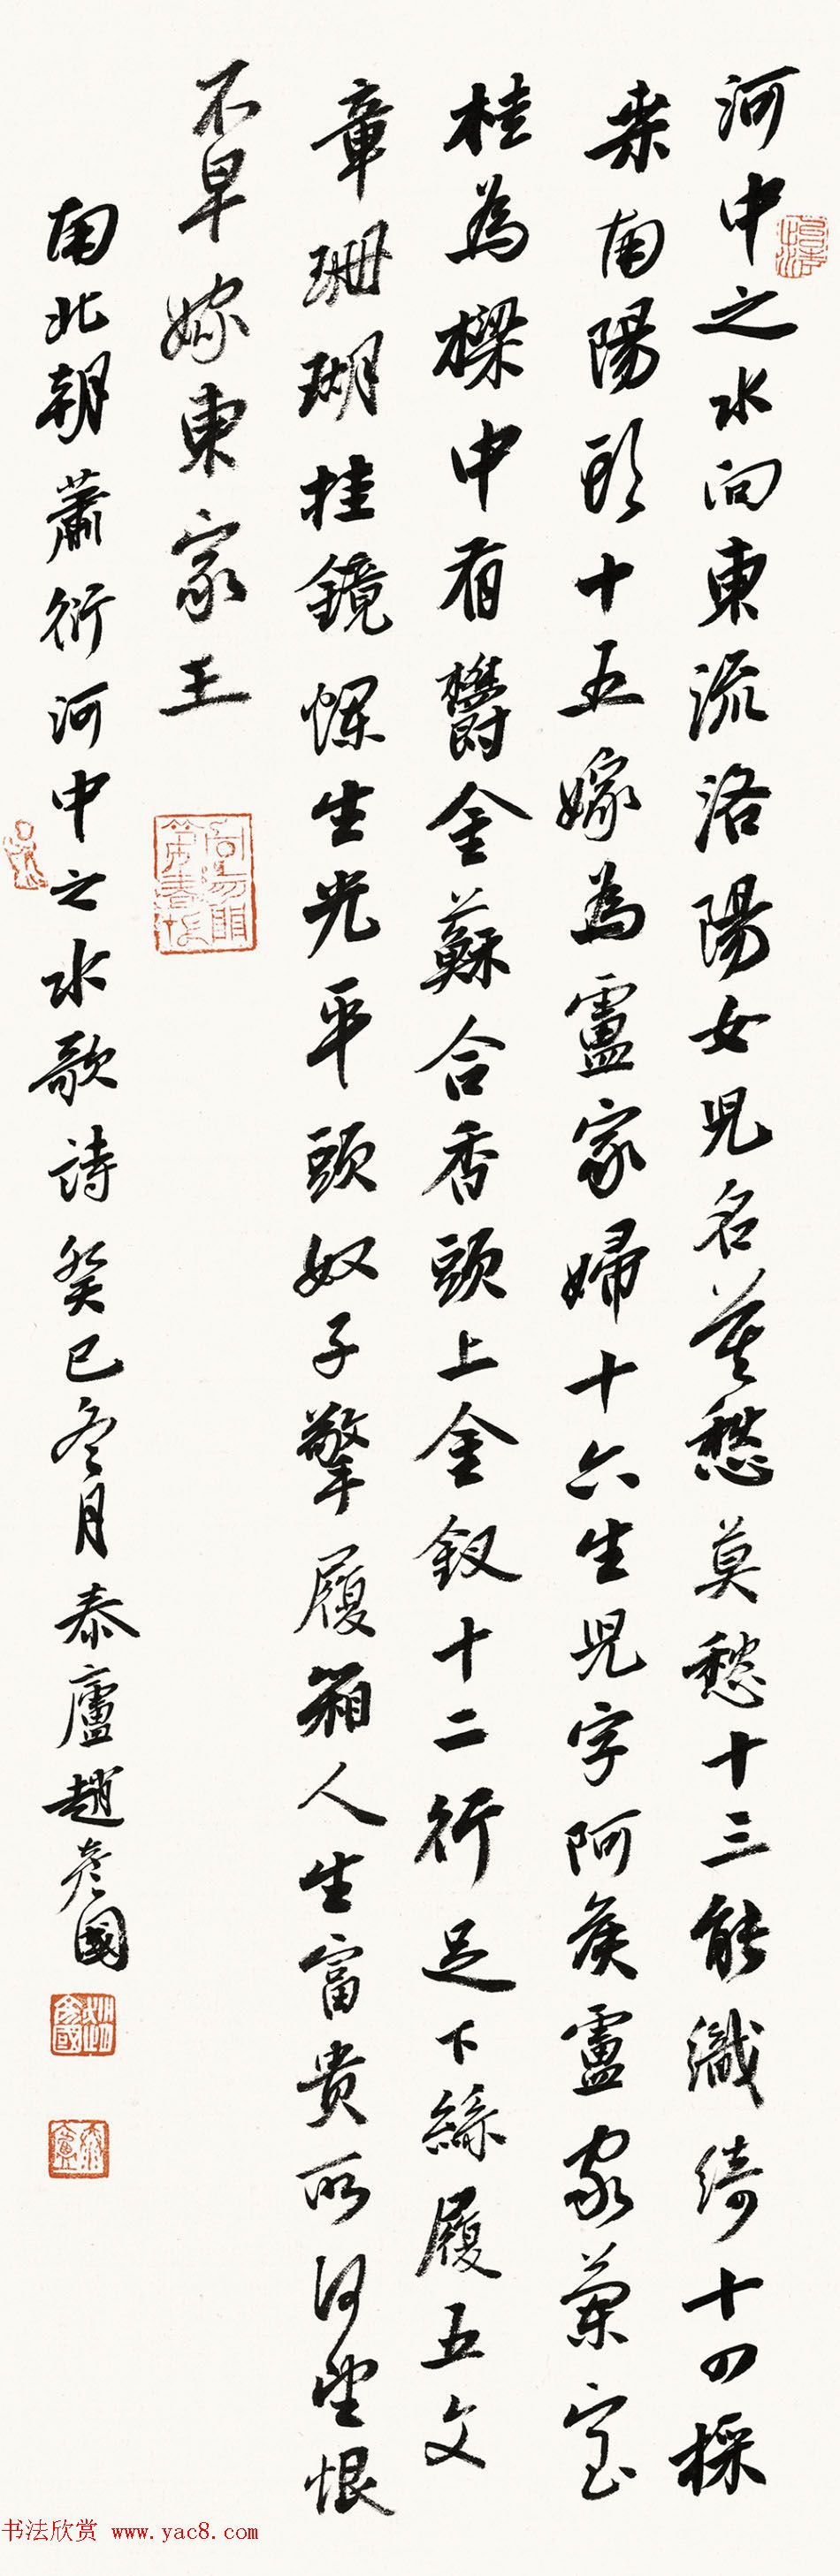 河中之水向東流洛陽女兒名莫愁莫愁十三能織綺十四採
桒南陽頭十五嫁為盧家婦十六生兒字阿侯盧家蘭室
桂為樑中有鬱金蘇合香頭上金釵十二行足下絲履五文
章珊瑚挂鏡爛生光平頭奴子擎履箱人生富貴所何望恨
不早嫁東家王
南北朝蕭衍河中之水歌詩癸巳冬月泰廬趙彥國
趙彥國
泰廬
书法欣赏 www.yac8.com